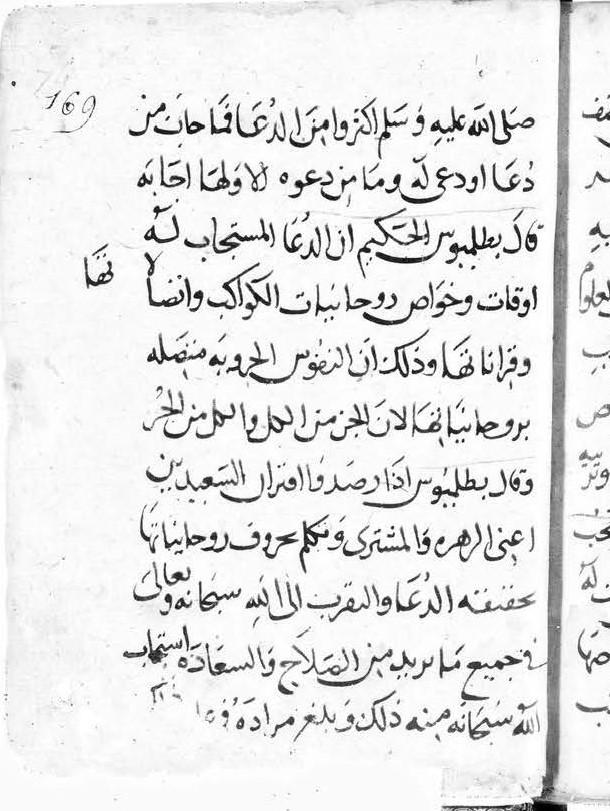 169
صلى الله عليه وسلم اكثروا من الدعا فما حات من
دعا او دعى له وما من دعوه لا ولها اجابه
قال بطلميوس الحكيم ان الدعا المستجاب له
اوقات وخواص روحانيات الكواكب واتصالا تها
وقراناتها وذلك ان النفوس الجزويه متصله
بروحانياتها لان الجز من الكل والكل من الجز
وقال بطلميوس اذا رصدوا اقتران السعيدين
اعنى الزهره والمشترى وتكلم بحروف روحانياتها
بحقيقه الدعا والتقرب الى الله سبحانه وتعالى
فى جميع ما يريد من الصلاح والسعاده استجاب
الله سبحانه منه ذلك وبلغ مراده